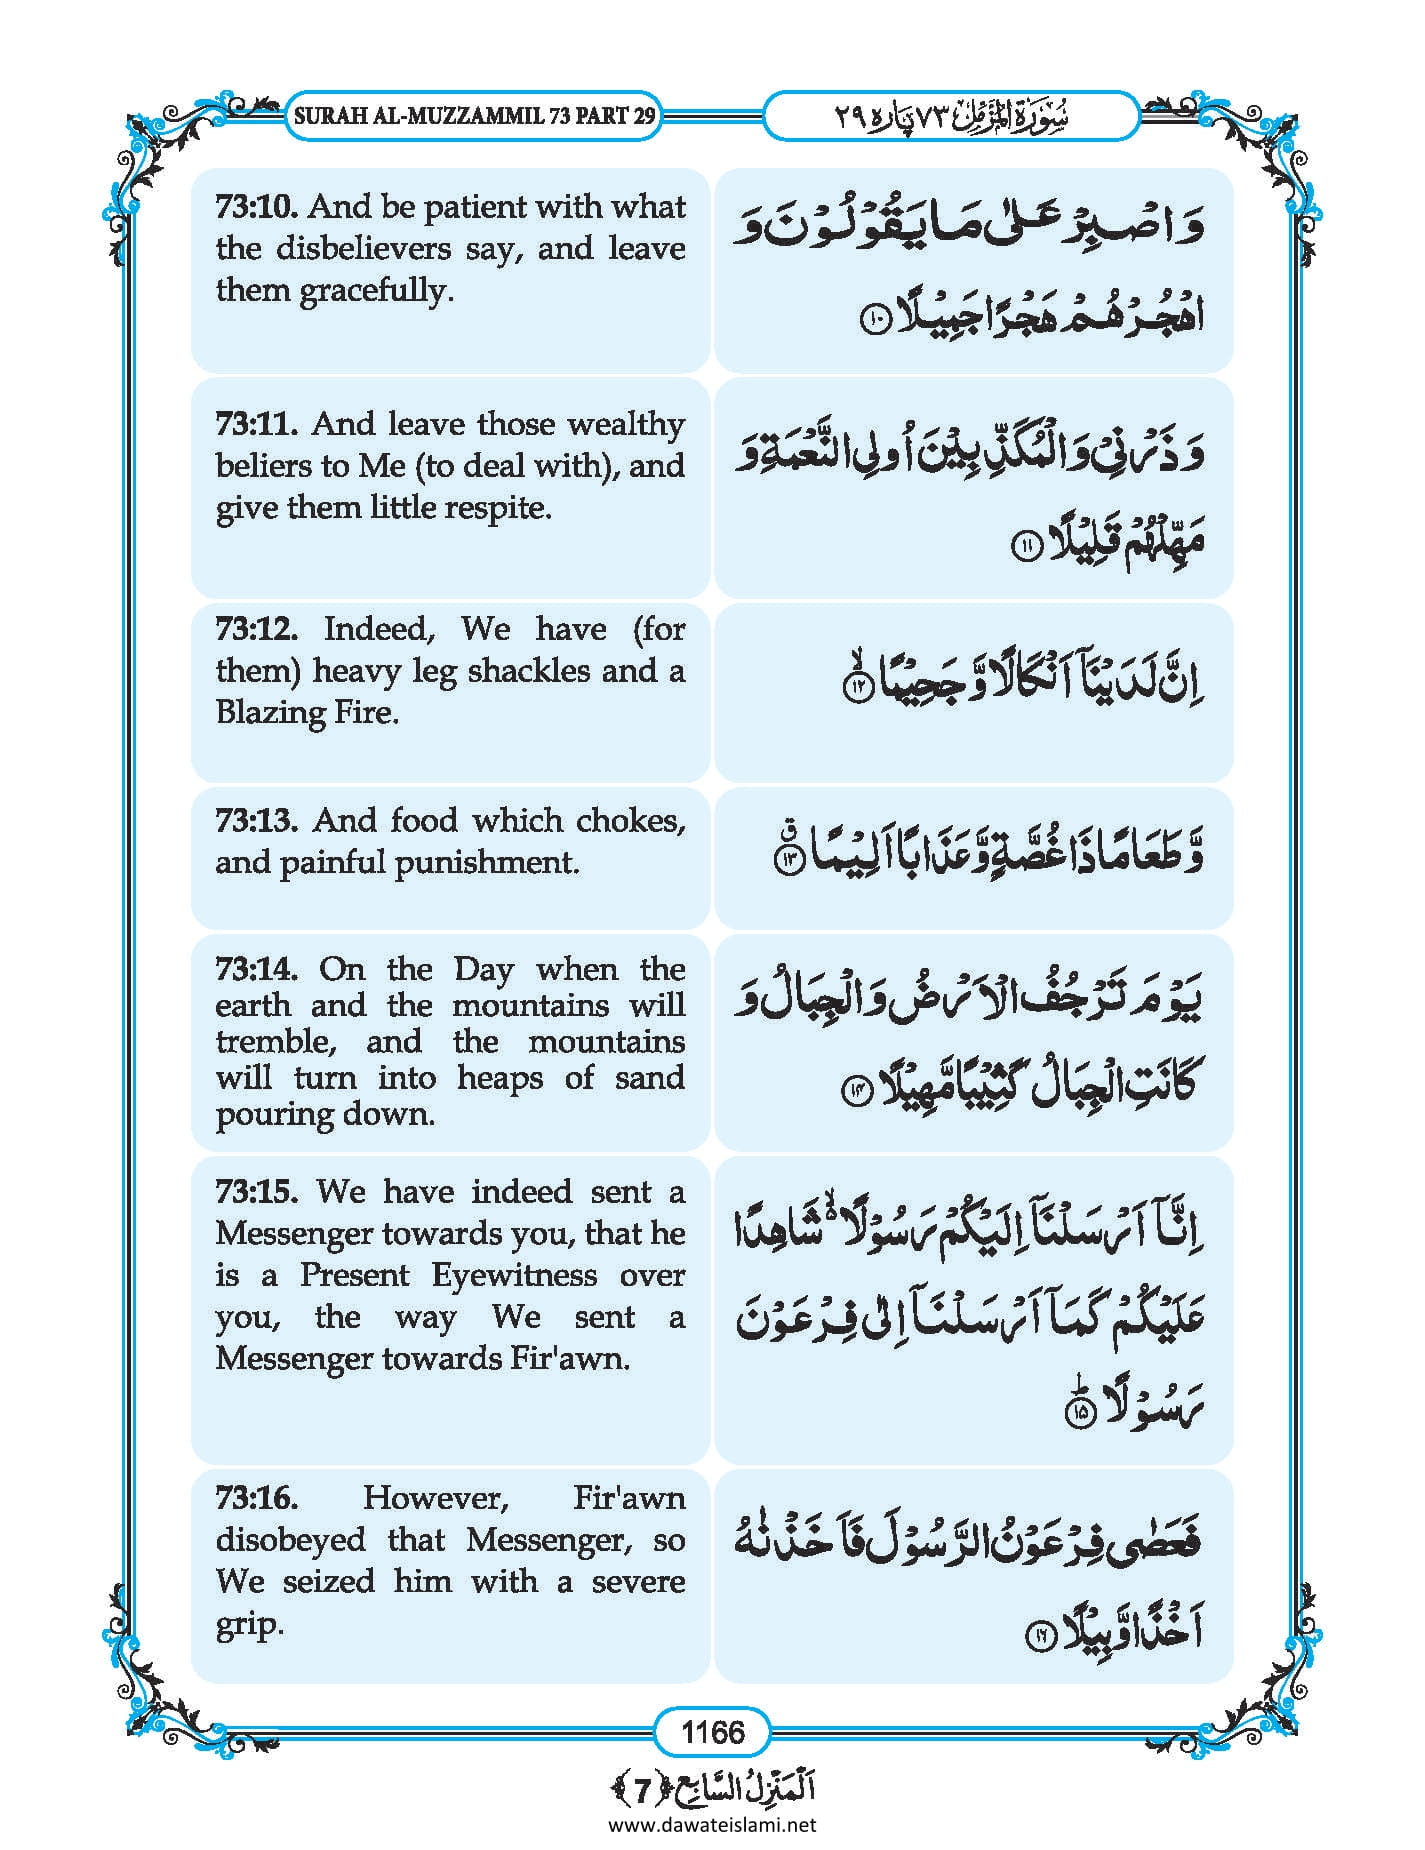 SURAH AL-MUZZAMMIL 73 PART 29
سُوْرَةُ الْمُزَّمِّلِ ٧٣ پَارَه ٢٩
73:10. And be patient with what
the disbelievers say, and leave
them gracefully.
وَ اصْبِرْ عَلٰى مَا یَقُوْلُوْنَ وَ
اهْجُرْهُمْ هَجْرًا جَمِیْلًا ﴿۱۰﴾
73:11. And leave those wealthy
beliers to Me (to deal with), and
give them little respite.
وَ ذَرْنِیْ وَ الْمُكَذِّبِیْنَ اُولِی النَّعْمَةِ وَ
مَهِّلْهُمْ قَلِیْلًا ﴿۱۱﴾
73:12. Indeed, We have (for
them) heavy leg shackles and a
Blazing Fire.
اِنَّ لَدَیْنَاۤ اَنْكَالًا وَّ جَحِیْمًا ﴿ۙ۱۲﴾
73:13. And food which chokes,
and painful punishment.
وَّ طَعَامًا ذَا غُصَّةٍ وَّ عَذَابًا اَلِیْمًا ﴿ۗ۱۳﴾
73:14. On the Day when the
earth and the mountains will
tremble, and the mountains
will turn into heaps of sand
pouring down.
یَوْمَ تَرْجُفُ الْاَرْضُ وَ الْجِبَالُ وَ
كَانَتِ الْجِبَالُ كَثِیْبًا مَّهِیْلًا ﴿۱۴﴾
73:15. We have indeed sent a
Messenger towards you, that he
is a Present Eyewitness over
you, the way We sent a
Messenger towards Fir'awn.
اِنَّاۤ اَرْسَلْنَاۤ اِلَیْكُمْ رَسُوْلًا ۙ۬ شَاهِدًا
عَلَیْكُمْ كَمَاۤ اَرْسَلْنَاۤ اِلٰى فِرْعَوْنَ
رَسُوْلًا ﴿ؕ۱۵﴾
73:16. However, Fir'awn
disobeyed that Messenger, so
We seized him with a severe
grip.
فَعَصٰى فِرْعَوْنُ الرَّسُوْلَ فَاَخَذْنٰهُ
اَخْذًا وَّبِیْلًا ﴿۱۶﴾
1166
اَلْمَنْزِلُ السَّابِع ﴿7﴾
www.dawateislami.net